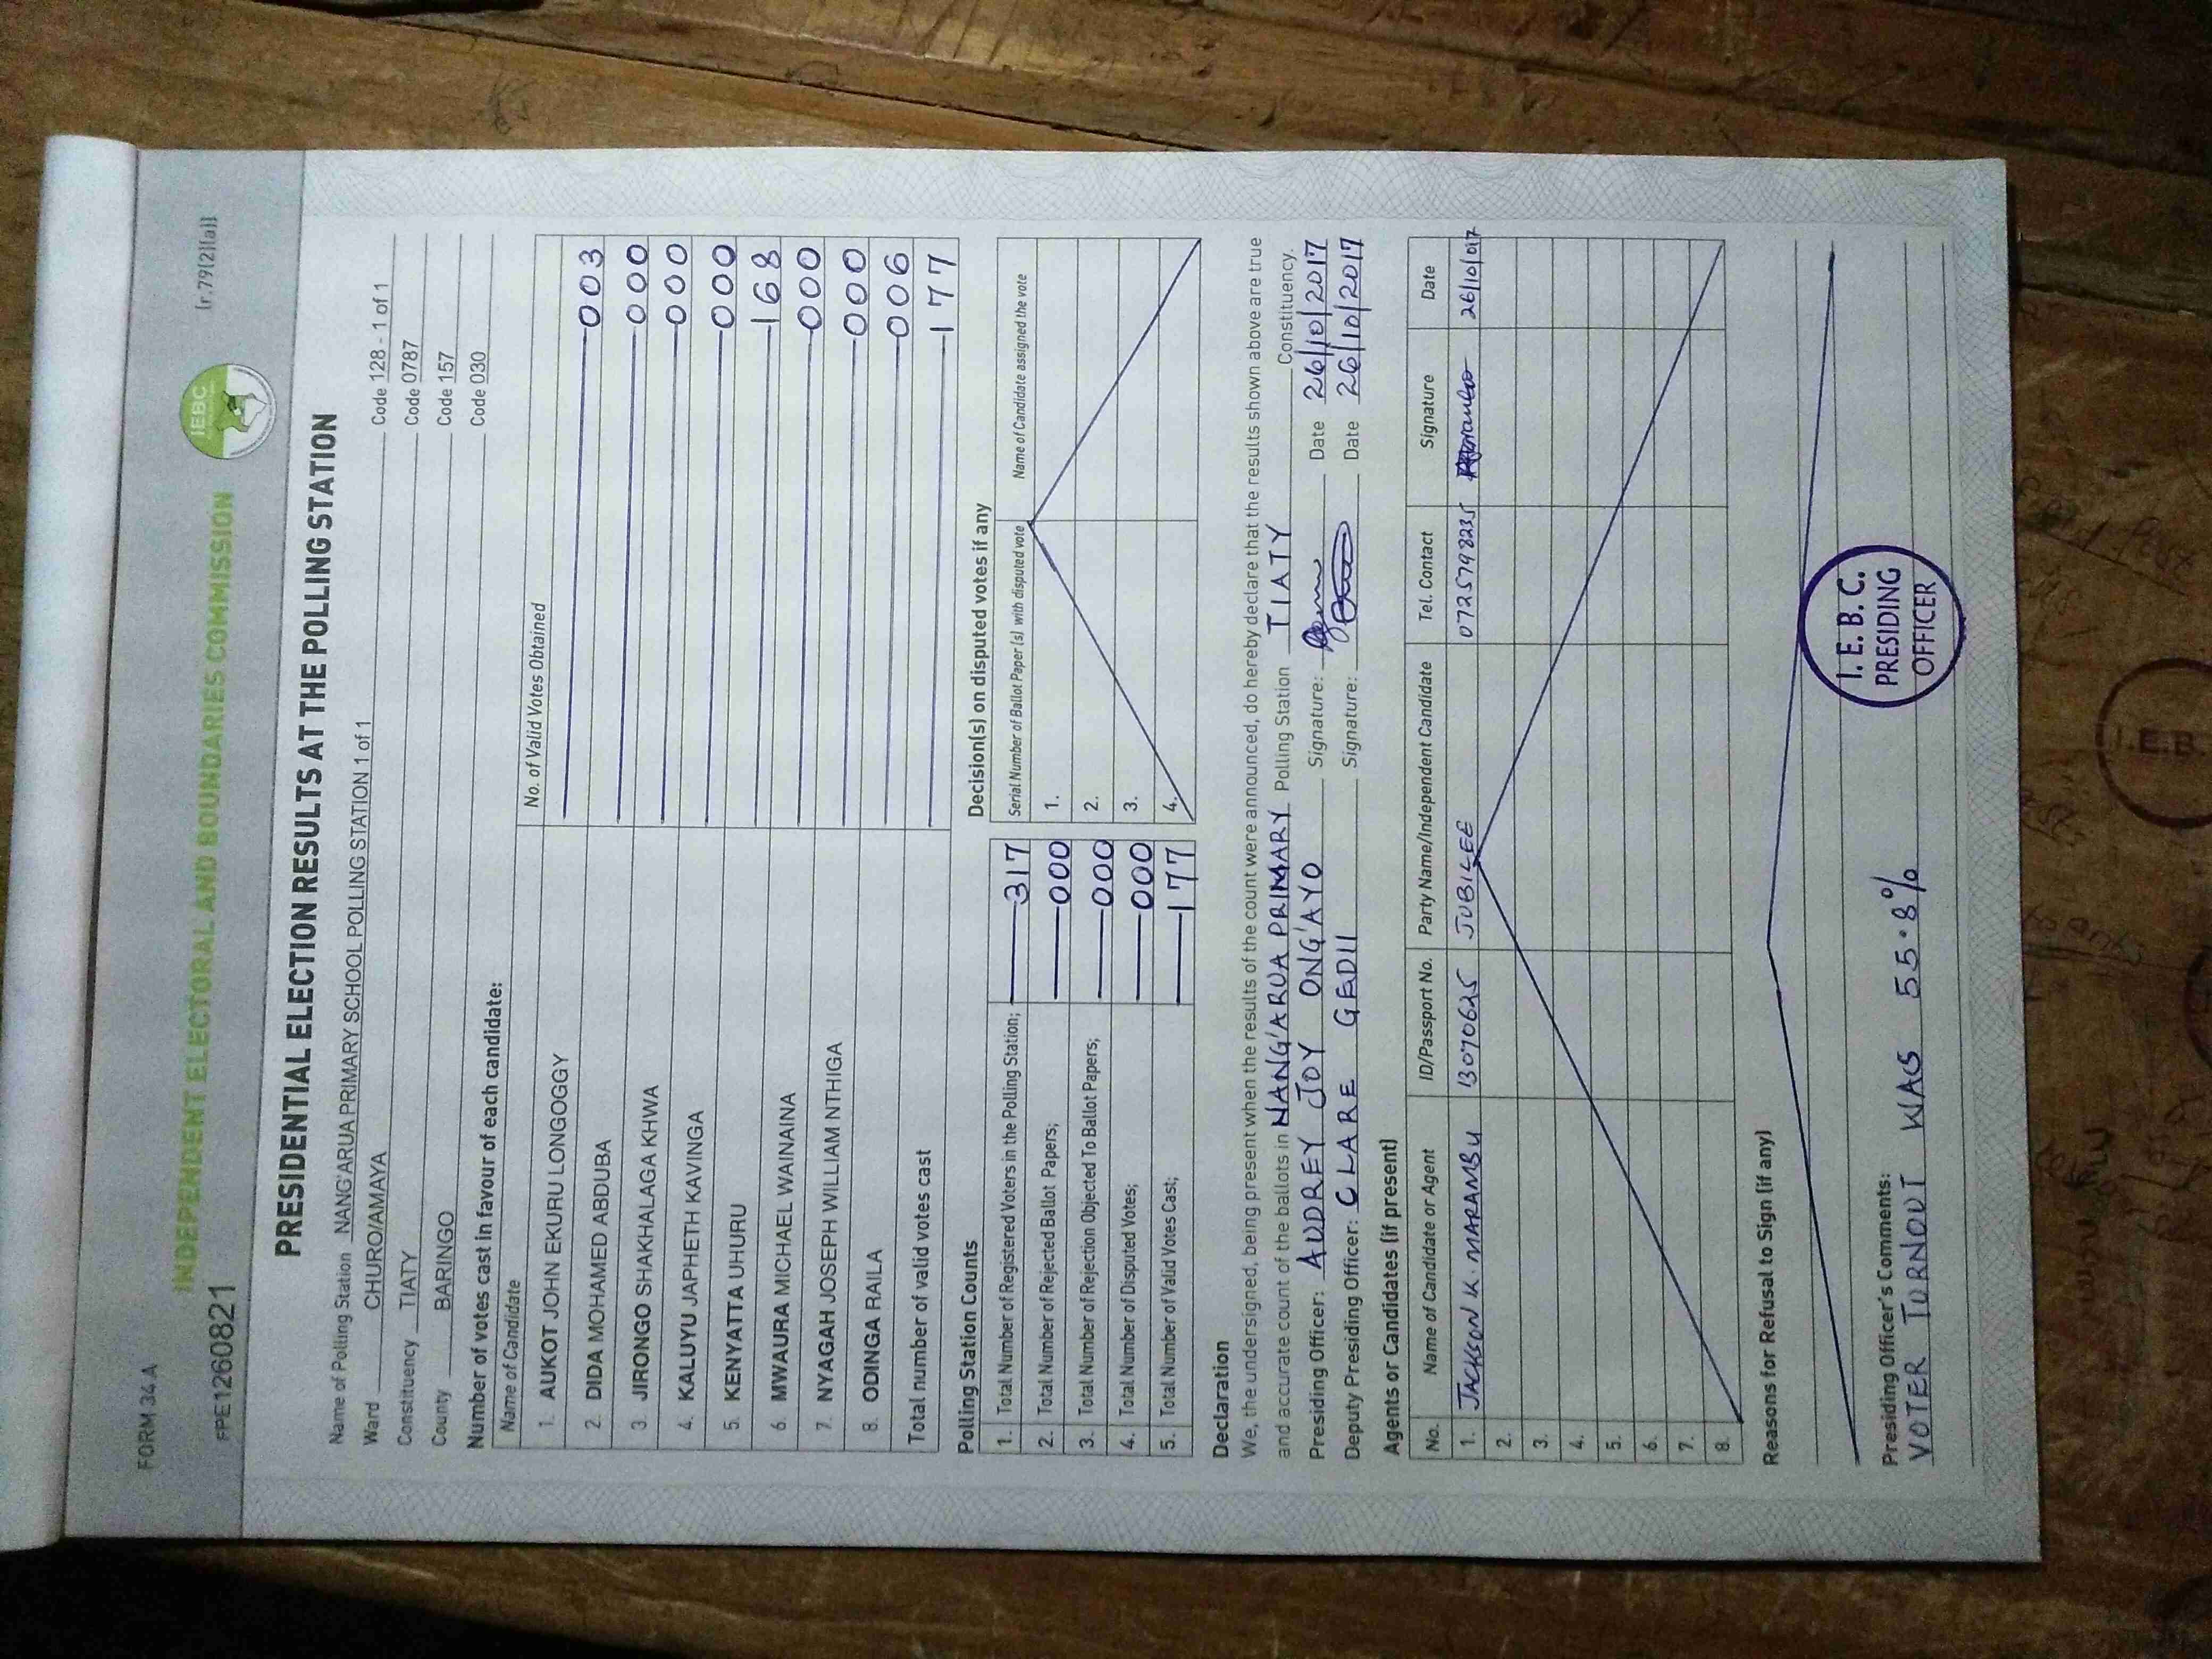 FORM 34 A
(r.79(2)(a))
INDEPENDENT ELECTORAL AND BOUNDARIES COMMISSION
IEBC
FPE1260821
PRESIDENTIAL ELECTION RESULTS AT THE POLLING STATION
Name of Polling Station NANG'ARUA PRIMARY SCHOOL POLLING STATION 1 of 1 Code 128 - 1 of 1
Ward CHURO/AMAYA Code 0787
Constituency TIATY Code 157
County BARINGO Code 030
Number of votes cast in favour of each candidate:
Name of Candidate No. of Valid Votes Obtained
1. AUKOT JOHN EKURU LONGOGGY 003
2. DIDA MOHAMED ABDUBA 000
3. JIRONGO SHAKHALAGA KHWA 000
4. KALUYU JAPHETH KAVINGA 000
5. KENYATTA UHURU 168
6. MWAURA MICHAEL WAINAINA 000
7. NYAGAH JOSEPH WILLIAM NTHIGA 000
8. ODINGA RAILA 006
Total number of valid votes cast 177
Polling Station Counts
1. Total Number of Registered Voters in the Polling Station; 317
2. Total Number of Rejected Ballot Papers; 000
3. Total Number of Rejection Objected To Ballot Papers; 000
4. Total Number of Disputed Votes; 000
5. Total Number of Valid Votes Cast; 177
Decision(s) on disputed votes if any
Serial Number of Ballot Paper (s) with disputed vote Name of Candidate assigned the vote
1.
2.
3.
4.
Declaration
We, the undersigned, being present when the results of the count were announced, do hereby declare that the results shown above are true
and accurate count of the ballots in NANG'ARUA PRIMARY Polling Station TIATY Constituency.
Presiding Officer: AUDREY JOY ONG'AYO Signature: Date 26/10/2017
Deputy Presiding Officer: CLARE GEDII Signature: Date 26/10/2017
Agents or Candidates (if present)
No. Name of Candidate or Agent ID/Passport No. Party Name/Independent Candidate Tel. Contact Signature Date
1. JACKSON K. MARAMBU 13070625 JUBILEE 0725798235 26/10/017
2.
3.
4.
5.
6.
7.
8.
Reasons for Refusal to Sign (if any)
Presiding Officer's Comments:
VOTER TURNOUT WAS 55.8%
I. E. B. C.
PRESIDING
OFFICER
I.E.B.